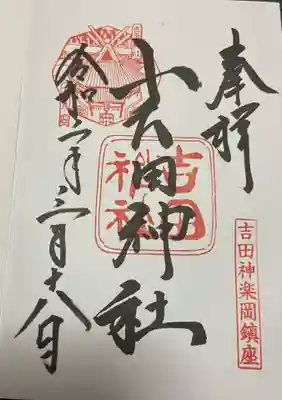 奉拝
吉田神楽岡鎮座
吉田神社
吉田神社
令和二年三月十八日